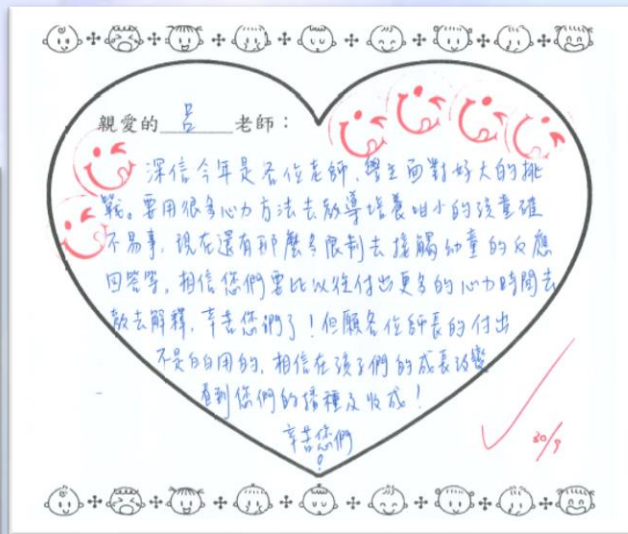 親愛的 呂 老師：
深信今年是各位老師，學生面對好大的挑
戰。要用很多心力方法去教導培養咁小的孩童確
不易事，現在還有那麼多限制去接觸幼童的反應
回答等，相信您們要比以往付出更多的心力時間去
教去解釋，辛苦您們了！但願各位師長的付出
不是白白用的，相信在孩子們的成長改變
看到您們的播種及收成！
辛苦您們
！
30/9